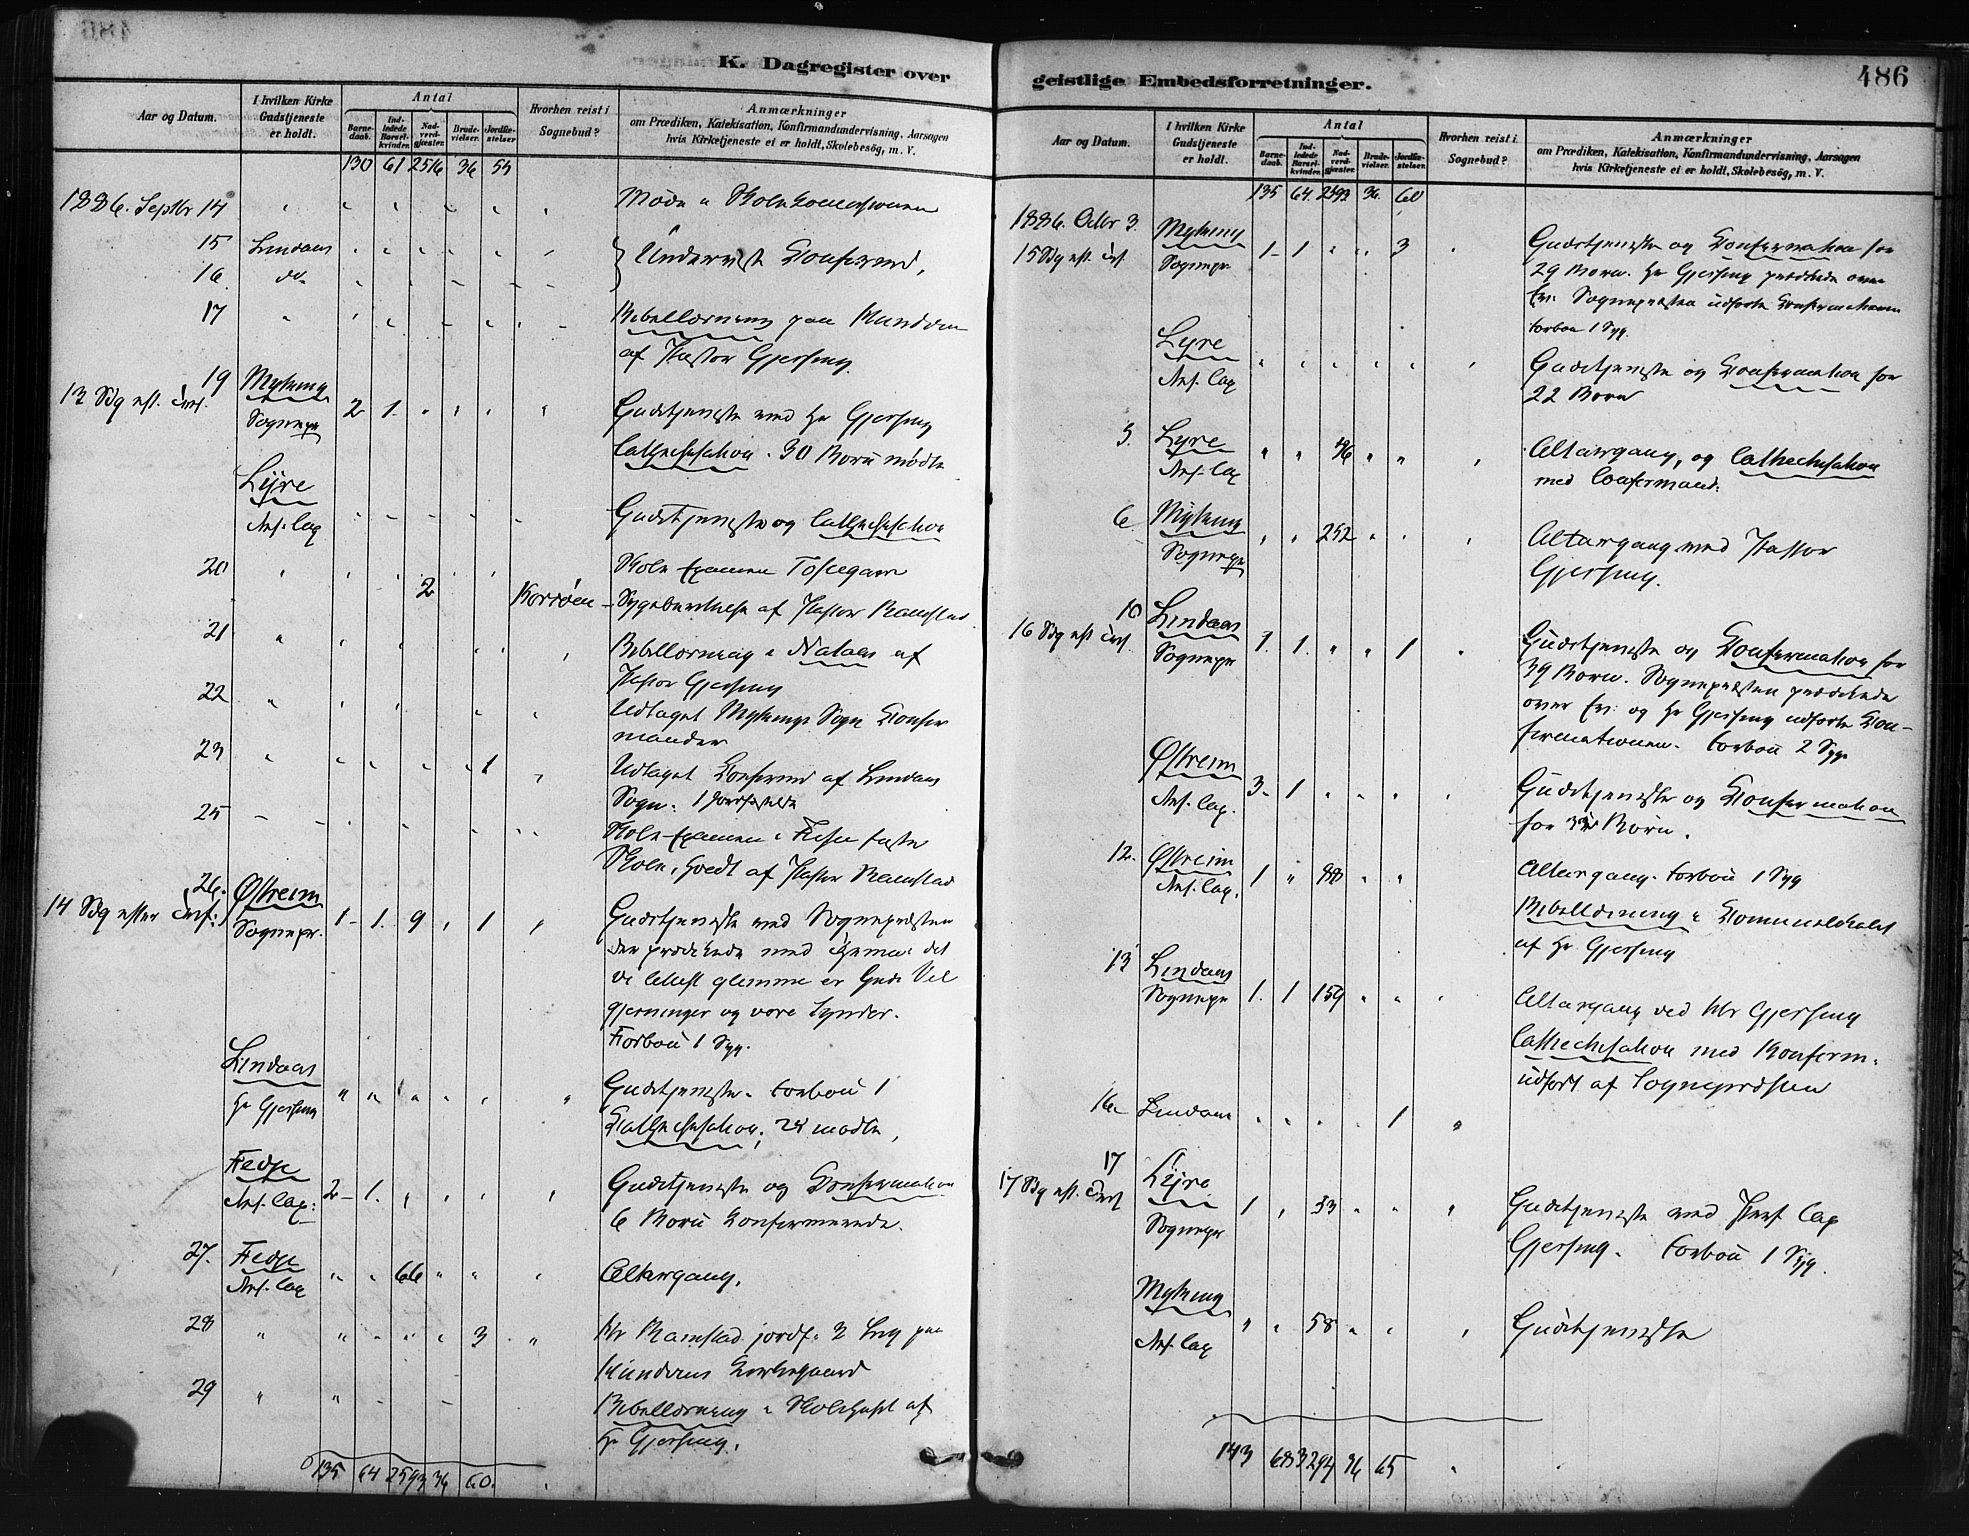 K. Dagregister over
Aar og Datum.
I hvilken Kirke Gudstjeneste er holdt.
Antal
Barnedaab.
Indledede Barselkvinder.
Nadverdgjæster.
Brudevielser.
Jordfæstelser.
Hvorhen reist i Sognebud?
Anmærkninger
om Prædiken, Katekisation, Konfirmandundervisning, Aarsagen
hvis Kirketjeneste ei er holdt, Skolebesög, m. V.
130 61 2516 36 55
1886. Septbr 14 Möde i Skolekommissionen
15 Lindaas
Underviste Konfirmd.
16 do
17 Bibellæsning paa
af Pastor Gjersing.
19 Myking
13 Sdg eft. Tref. Sognepr 2 1 Gudstjeneste ved Hr Gjersing
Cathechisation. 30 Börn mödte
Lyre
Pers. Cap Gudstjeneste og Cathechisation
20 Skole Examen
2 Sygeberettelse af Pastor Ramstad.
21 Bibellæsning i af
Pastor Gjersing
22 Udtaget Mykings Sogns Konfir
mander
23 1 Udtaget Konfirmd af Lindaas
Sogn. 1 Jordfæstelse
25 Skole Examen i faste
Skole, holdt af Pastor Ramstad
26. Østreim
14 Sdg efter Tref: Sognepr. 1 1. 9 1 Gudstjeneste ved Sognepræsten
der prædikede med Thema: det
vi lettest glemme er Guds Vel
gjerninger og vore Synder.
Forbön 1 Syg.
Lindaas
Hr Gjersing Gudstjeneste. Forbön 1
Cathechisation; 28 mödte,
Fedje
Pers. Cap: 2 1. Gudstjeneste og Konfirmation
6 Börn Konfirmerede.
27. Fedje
Pers. Cap 66 Altergang.
28 3 Hr Ramstad jordf. 3 Lig paa
Kirkegaard
29 Bibellæsning i Skolehuset af
Hr Gjersing.
135 64 2593 36 60.
geistlige Embedsforretninger.
486
Aar og Datum.
I hvilken Kirke Gudstjeneste er holdt.
Antal
Barnedaab.
Indledede Barselkvinder.
Nadverdgjæster.
Brudevielser.
Jordfæstelser.
Hvorhen reist i Sognebud?
Anmærkninger
om Prædiken, Katekisation, Konfirmandundervisning, Aarsagen
hvis Kirketjeneste ei er holdt, Skolebesög, m. V.
135 64. 2593 36. 60
1886. Octbr 3. Myking
15 Sdg eft. Tref. Sognepr. 1 1 3 Gudstjeneste og Konfirmation for
29 Börn. Hr Gjersing prædikede over
Ev: Sognepræsten udförte Konfirmationen
Forbön 1 Syg.
Lyre
Pers. Cap Gudstjeneste og Konfirmation for
22 Börn
5. Lyre
Pers. Cap 46 Altergang, og Cathechisation
med Confirmand:
6 Myking
Sognepr 252 Altergang ved Pastor
Gjersing.
10 Lindaas
16 Sdg eft Tref. Sognepr 1. 1. 1 Gudstjeneste og Konfirmation for
39 Börn. Sognepræsten prædikede
over Ev: og Hr Gjersing udförte Kon-
firmationen. Forbön 2 Syge
Østreim
Pers. Cap. 3 1 Gudstjeneste og Konfirmation
for Börn.
12. Østreim
Pers. Cap. 1 88 Altergang. Forbön 1 Syg
Bibellæsning i Kommunelokalet
af Hr Gjersing
13 Lindaas
Sognepr 1. 1 159 Altergang ved Hr Gjersing
Cathechisation med Konfirm.
udfört af Sognepræsten
16 Lindaas 1
17 Lyre
17 Sdg eft. Tref Sognepr 1 33 Gudstjeneste ved Pers Cap
Gjersing. Forbön 1 Syg.
Myking
Pers. Cap 58 Gudstjeneste
143 68 3294 36 65